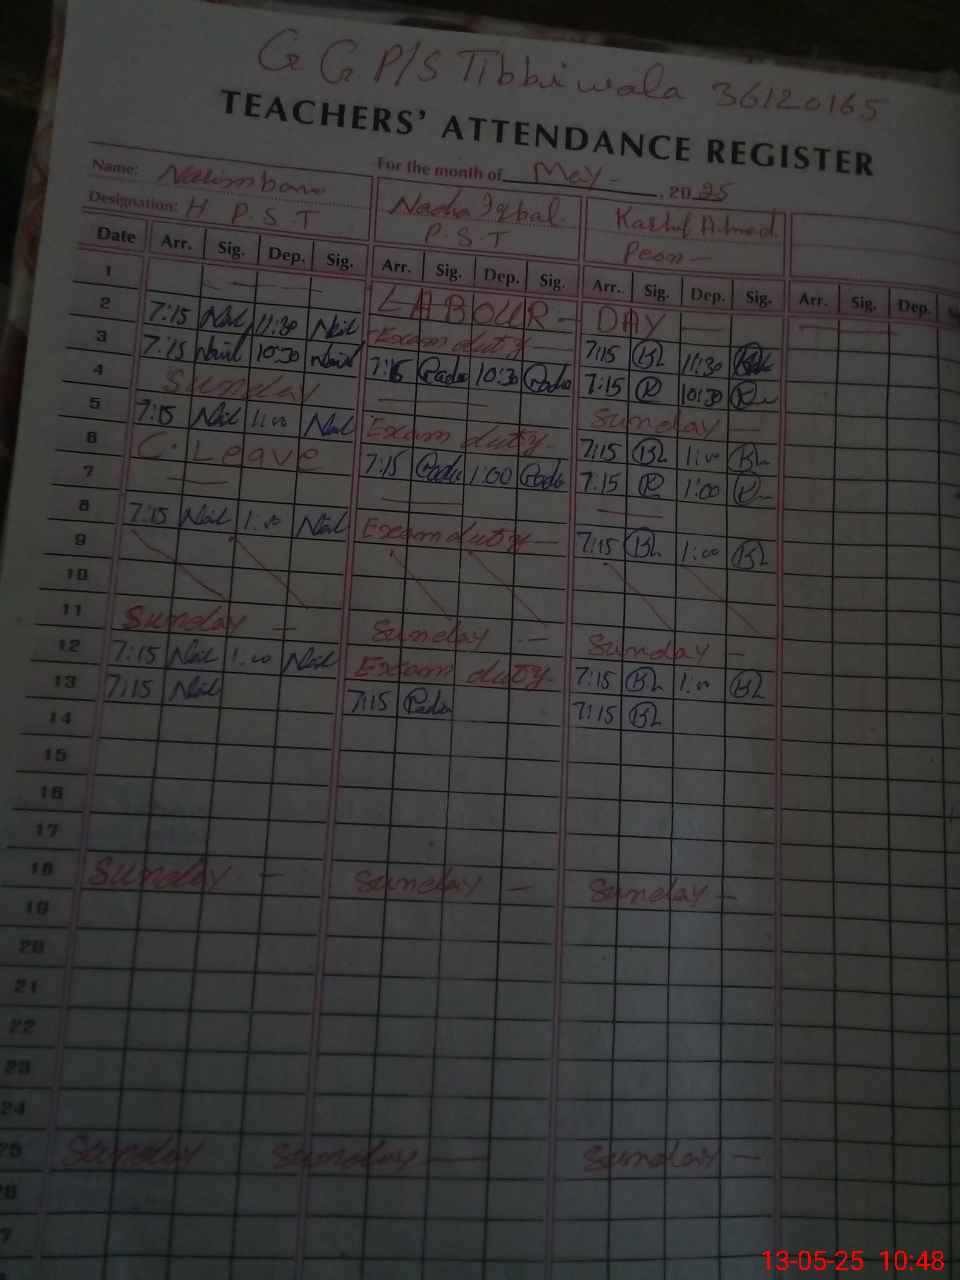 G G P/S Tibbi wala 36120165
TEACHERS' ATTENDANCE REGISTER
Name: For the month of May - , 20 25
Nadia Iqbal. Kashif Ahmad.
Designation: H P. S. T P. S. T Peon -
Date Arr. Sig. Dep. Sig. Arr. Sig. Dep. Sig. Arr. Sig. Dep. Sig. Arr. Sig. Dep.
1 LABOUR - DAY
2 7:15 11:30 Exam duty 7:15 11:30
3 7:15 10:30 7:15 10:30 7:15 10:30
4 Sunday Sunday
5 7:15 1:00 Exam duty 7:15 1:00
6 C. Leave 7:15 1:00 7:15 1:00
7
8 7:15 1:00 Exam duty 7:15 1:00
9
10
11 Sunday - Sunday - Sunday -
12 7:15 1:00 Exam duty 7:15 1:00
13 7:15 7:15 7:15
14
15
16
17
18 Sunday - Sunday - Sunday -
19
20
21
22
23
24
25 Sunday Sunday - Sunday -
26
7
13-05-25 10:48